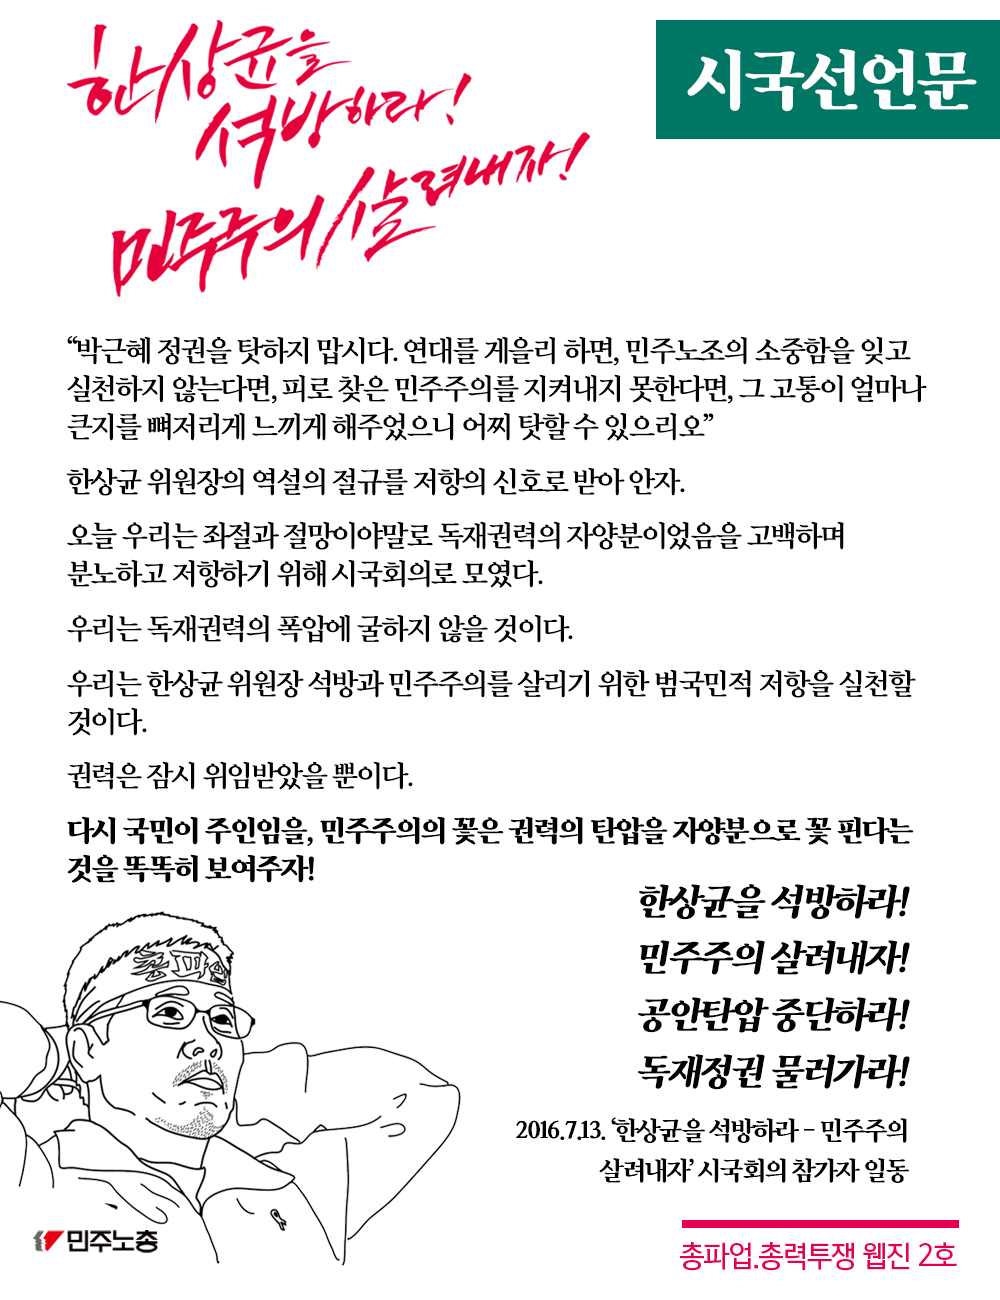 한상균을
석방하라!
민주주의 살려내자!
시국선언문
“박근혜 정권을 탓하지 맙시다. 연대를 게을리 하면, 민주노조의 소중함을 잊고
실천하지 않는다면, 피로 찾은 민주주의를 지켜내지 못한다면, 그 고통이 얼마나
큰지를 뼈저리게 느끼게 해주었으니 어찌 탓할 수 있으리오”
한상균 위원장의 역설의 절규를 저항의 신호로 받아 안자.
오늘 우리는 좌절과 절망이야말로 독재권력의 자양분이었음을 고백하며
분노하고 저항하기 위해 시국회의로 모였다.
우리는 독재권력의 폭압에 굴하지 않을 것이다.
우리는 한상균 위원장 석방과 민주주의를 살리기 위한 범국민적 저항을 실천할
것이다.
권력은 잠시 위임받았을 뿐이다.
다시 국민이 주인임을, 민주주의의 꽃은 권력의 탄압을 자양분으로 꽃 핀다는
것을 똑똑히 보여주자!
한상균을 석방하라!
민주주의 살려내자!
공안탄압 중단하라!
독재정권 물러가라!
2016.7.13. ‘한상균을 석방하라 - 민주주의
살려내자’ 시국회의 참가자 일동
총파업
민주노총
총파업.총력투쟁 웹진 2호